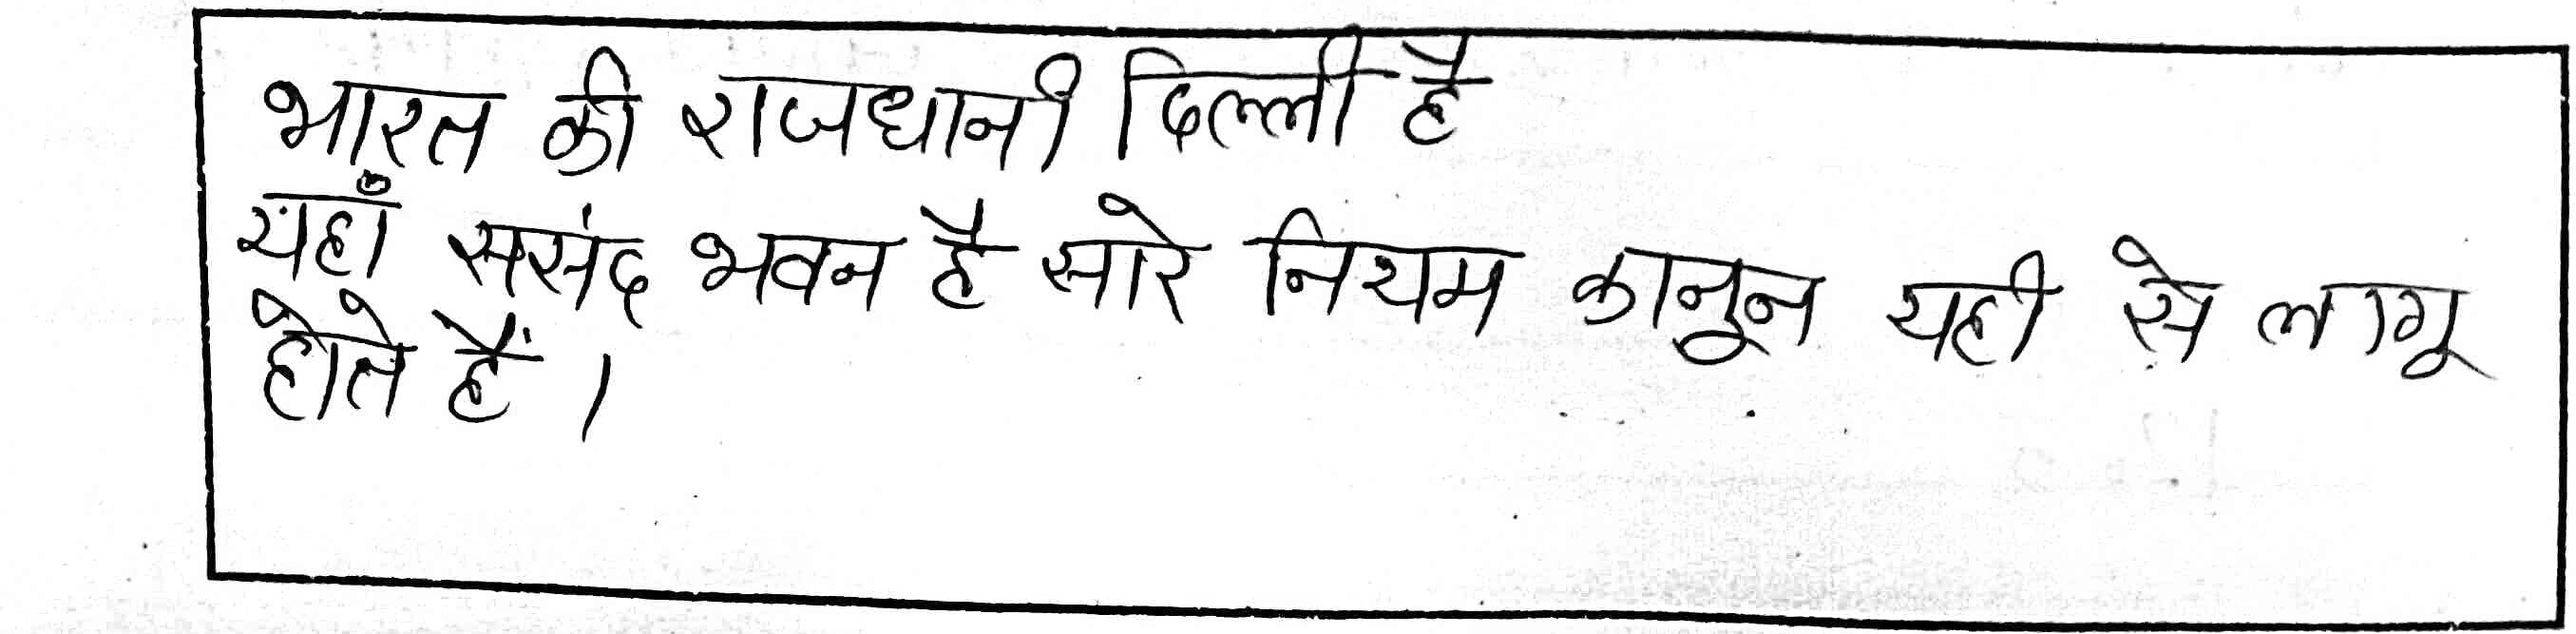 भारत की राजधानी दिल्ली है
यहाँ ससंद भवन है सारे नियम कानून यही से लागू
होते हैं।